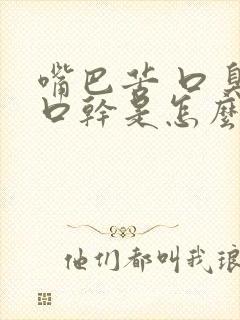 嘴巴苦口臭
口幹是怎麼
他们都叫我琅